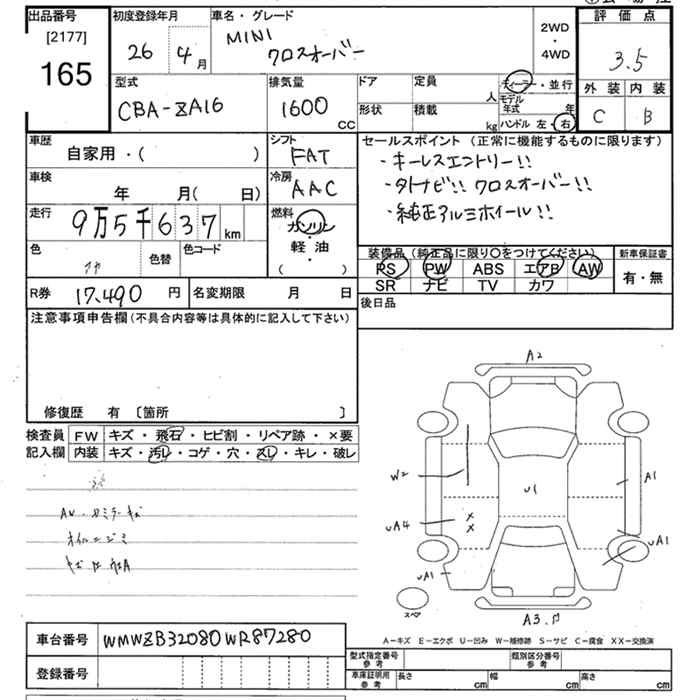 出品番号 初度登録年月 車名・グレード 評価点
[2177]
165
26 4月
MINI
クロスオーバー
2WD
・
4WD
3.5
外装 内装
C B
型式 排気量 ドア 定員 人 ディーラー・並行
CBA-ZA16 1600 CC
形状 積載 kg
モデル年式 年
ハンドル 左・右
車歴
自家用・( )
シフト
FAT
車検
年 月( 日)
冷房
AAC
走行
9万5千637 km
燃料
ガソリン
・
軽油
( )
色 色替 色コード
セールスポイント (正常に機能するものに限ります)
・キーレスエントリー!!
・クロスオーバー!!
・純正アルミホイール!!
装備品(純正品に限り○をつけてください) 新車保証書
PS PW ABS エアB AW 有・無
SR ナビ TV カワ
R券 17,490 円 名変期限 月 日
後日品
注意事項申告欄(不具合内容等は具体的に記入して下さい)
修復歴 有 〔箇所 〕
検査員 FW キズ・飛石・ヒビ割・リペア跡・×要
記入欄 内装 キズ・汚レ・コゲ・穴・スレ・キレ・破レ
A2
W2
U1
A1
UA4
UA1
UA1
スペア
A3.
A－キズ E－エクボ U－凹み W－補修跡 S－サビ C－腐食 XX－交換済
車台番号 WMWZB32080WR87280
登録番号
型式指定番号 参考 類別区分番号 参考
車庫証明用 参考 長さ cm 幅 cm 高さ cm